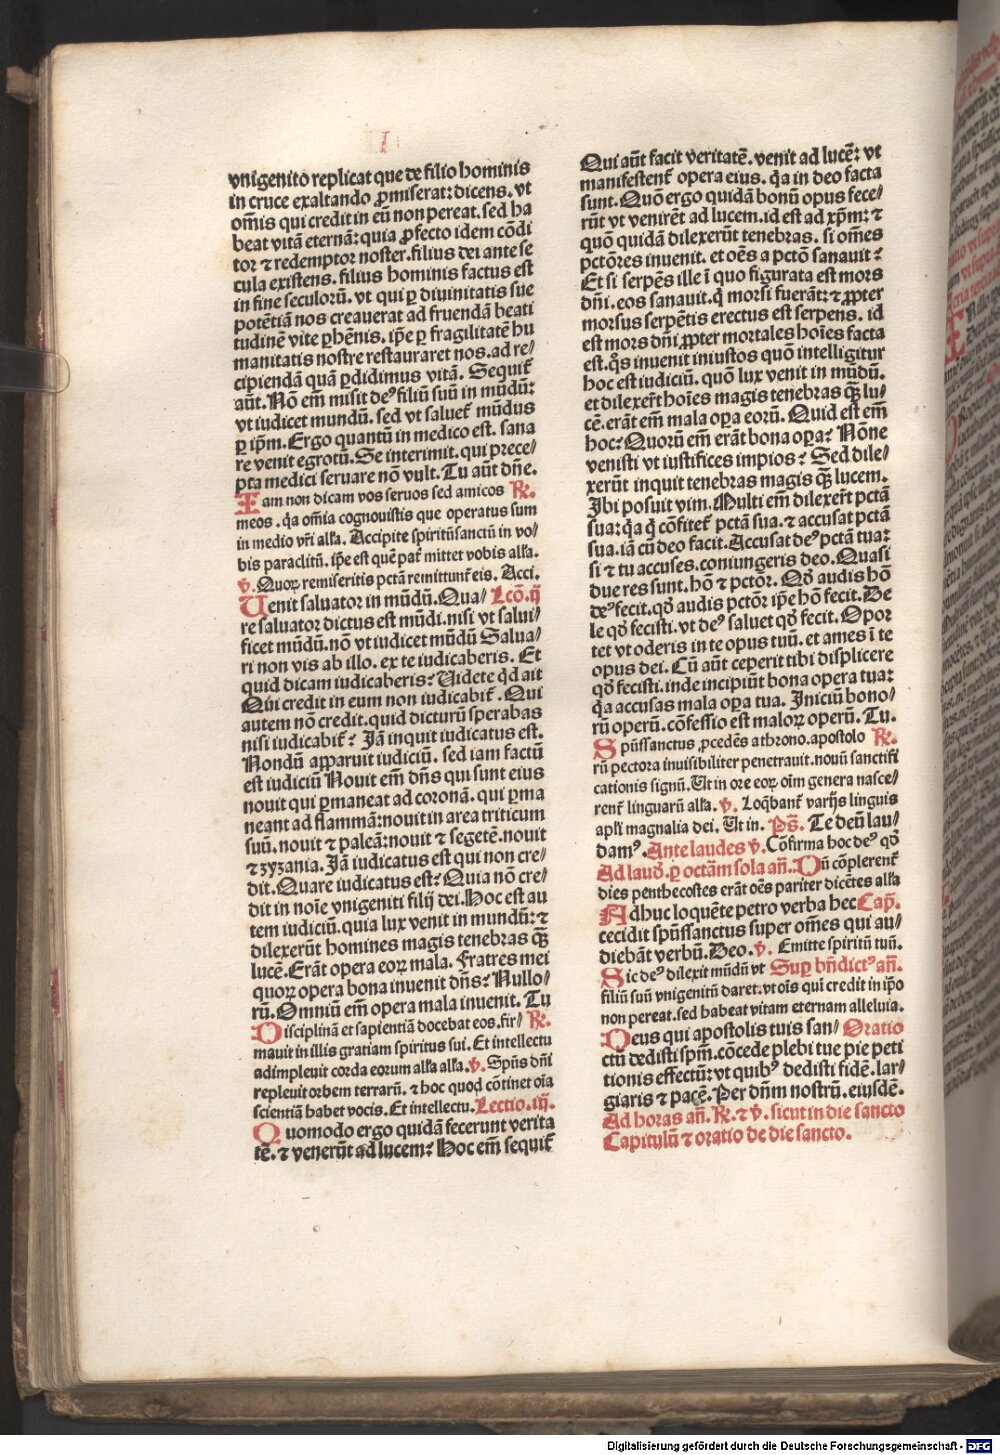 vnigenito replicat que de filio hominis
in cruce exaltando ꝓmiserat: dicens. vt
om̄is qui credit in eū non pereat. sed ha
beat vitā eternā: quia ꝓfecto idem cōdi
tor ⁊ redemptor noster. filius dei ante se
cula existens. filius hominis factus est
in fine seculorū. vt qui ꝑ diuinitatis sue
potētiā nos creauerat ad fruendā beati
tudinē vite ꝑhēnis. ip̄e ꝑ fragilitatē hu
manitatis nostre restauraret nos. ad re⸗
cipiendā quā ꝑdidimus vitā. Sequit᷑
aūt. Nō em̄ misit de⁹ filiū suū in mūdū:
vt iudicet mundū. sed vt saluet᷑ mūdus
ꝑ ip̄m. Ergo quantū in medico est. sana
re venit egrotū. Se interimit. qui prece⸗
pta medici seruare nō vult. Tu aūt dn̄e.
Iam non dicam vos seruos sed amicos R̷.
meos. q̇a om̄ia cognouistis que operatus sum
in medio vr̄i alľa. Accipite spiritūsanctū in vo⸗
bis paraclitū. ip̄e est quē pat᷑ mittet vobis alľa.
v̷. Quoꝝ remiseritis pctā remittunt᷑ eis. Acci.
Uenit saluator in mūdū. Qua⸗ Lcō. ij
re saluator dictus est mūdi. nisi vt salui⸗
ficet mūdū. nō vt iudicet mūdū Salua⸗
ri non vis ab illo. ex te iudicaberis. Et
quid dicam iudicaberis? Uidete qd̄ ait
Qui credit in eum non iudicabit᷑. Qui
autem nō credit. quid dicturū sperabas
nisi iudicabit᷑? Jā inquit iudicatus est.
Nondū apparuit iudiciū. sed iam factū
est iudiciū Nouit em̄ dn̄s qui sunt eius
nouit qui ꝑmaneat ad coronā. qui ꝑma
neant ad flammā: nouit in area triticum
suū. nouit ⁊ paleā: nouit ⁊ segetē. nouit
⁊ zyzania. Jā iudicatus est qui non cre⸗
dit. Quare iudicatus est? Quia nō cre⸗
dit in noīe vnigeniti filij dei. Hoc est au
tem iudiciū. quia lux venit in mundū: ⁊
dilexerūt homines magis tenebras qȝ̄
lucē. Erāt opera eoꝝ mala. Fratres mei
quoꝝ opera bona inuenit dn̄s? Nullo⸗
rū. Omniū em̄ opera mala inuenit. Tu
Disciplinā et sapientiā docebat eos. fir⸗ R̷.
mauit in illis gratiam spiritus sui. Et intellectu
adimpleuit corda eorum alľa alľa. v̷. Spūs dn̄i
repleuit orbem terrarū. ⁊ hoc quod cōtinet oīa
scientiā habet vocis. Et intellectu. Lectio. iij.
Quomodo ergo quidā fecerunt verita
tē. ⁊ venerūt ad lucem? Hoc em̄ sequit᷑
Qui aūt facit veritatē. venit ad lucē: vt
manifestent᷑ opera eius. q̇a in deo facta
sunt. Quō ergo quidā bonū opus fece⸗
rūt vt venirēt ad lucem. id est ad xp̄m: ⁊
quō quidā dilexerūt tenebras. si om̄es
pctōres inuenit. et oēs a pctō sanauit?
Et si serpēs ille ī quo figurata est mors
dn̄i. eos sanauit. q̇ morsi fuerāt: ⁊ ꝓpter
morsus serpētis erectus est serpens. id
est mors dn̄i ꝓpter mortales hoīes facta
est. q̊s inuenit iniustos quō intelligitur
hoc est iudiciū. quō lux venit in mūdū.
et dilexer̄t hoīes magis tenebras qȝ̄ lu⸗
cē. erāt em̄ mala oꝑa eorū. Quid est em̄
hoc? Quorū em̄ erāt bona oꝑa? Nōne
venisti vt iustifices impios? Sed dile⸗
xerūt inquit tenebras magis qȝ̄ lucem.
Ibi posuit vim. Multi em̄ dilexer̄t pctā
sua: q̇a q̇ cōfitet᷑ pctā sua. ⁊ accusat pctā
sua. iā cū deo facit. Accusat de⁹ pctā tua:
si ⁊ tu accuses. coniungeris deo. Quasi
due res sunt. hō ⁊ pctōr. Qd̄ audis hō
de⁹ fecit. qd̄ audis pctōr ip̄e hō fecit. De
le qd̄ fecisti. vt de⁹ saluet qd̄ fecit. Opor
tet vt oderis in te opus tuū. et ames ī te
opus dei. Cū aūt ceperit tibi displicere
qd̄ fecisti. inde incipiūt bona opera tua:
q̇a accusas mala oꝑa tua. Iniciū bono⸗
rū operū. cōfessio est maloꝝ operū. Tu.
Spūssanctus ꝓcedēs a throno. apostolo R̷.
rū pectora inuisibiliter penetrauit. nouū sanctifi
cationis signū. Ut in ore eoꝝ oīm genera nasce⸗
rent᷑ linguarū alľa. v̷. Loq̄bant᷑ varijs linguis
apľi magnalia dei. Ut in. Ps̄. Te deū lau⸗
dam⁹. Ante laudes v̷. Cōfirma hoc de⁹ qd̄
Ad laud̄. ꝑ octām sola an̄. Cū cōplerent᷑
dies penthecostes erāt oēs pariter dicētes alľa
Adhuc loquēte petro verba hec Cap̄.
cecidit spūssanctus super om̄es qui au⸗
diebāt verbū. Deo. v̷. Emitte spiritū tuū.
Sic de⁹ dilexit mūdū vt Suꝑ bn̄dict⁹ an̄.
filiū suū vnigenitū daret. vt oīs qui credit in ip̄o
non pereat. sed habeat vitam eternam alleluia.
Deus qui apostolis tuis san⸗ Oratio
ctū dedisti spm̄. cōcede plebi tue pie peti
tionis effectū: vt quib⁹ dedisti fidē. lar⸗
giaris ⁊ pacē. Per dn̄m nostrū. eiusdē.
Ad horas an̄. R̷. ⁊ v̷. sicut in die sancto
Capitulū ⁊ oratio de die sancto.
Digitalisierung gefördert durch die Deutsche Forschungsgemeinschaft - DFG